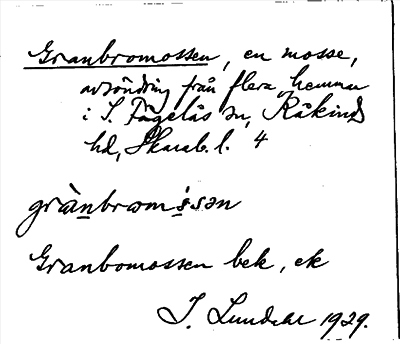 Granbromossen, en mosse,
avsöndring från flera hemman
i S. Fågelås sn, Kåkinds
hd, Skarab. l. 4
grànbromı̣ssən
Granbomossen bek, ek
J. Lundahl 1929.